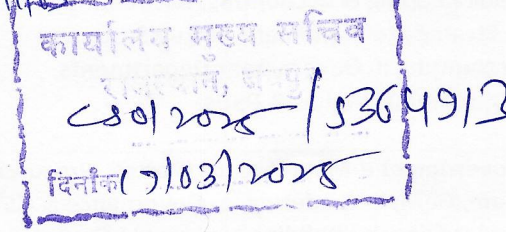 कार्यालय मुख्य सचिव
राजस्थान, जयपुर
CSO/2025/5364913
दिनांक 17/03/2025